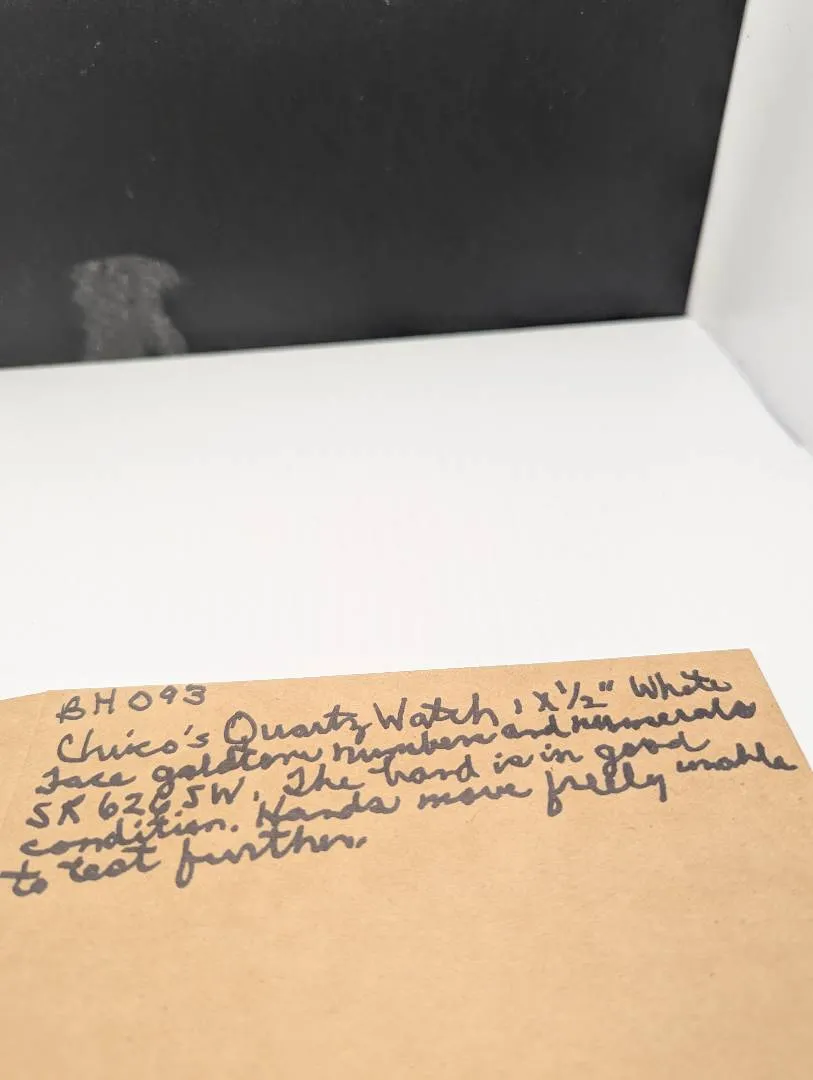 BH 093
Chico's Quartz Watch, 1 x 1/2" White
face goldtone numbers and numerals
SR 626 SW. The band is in good
condition. Hands move freely unable
to test further.